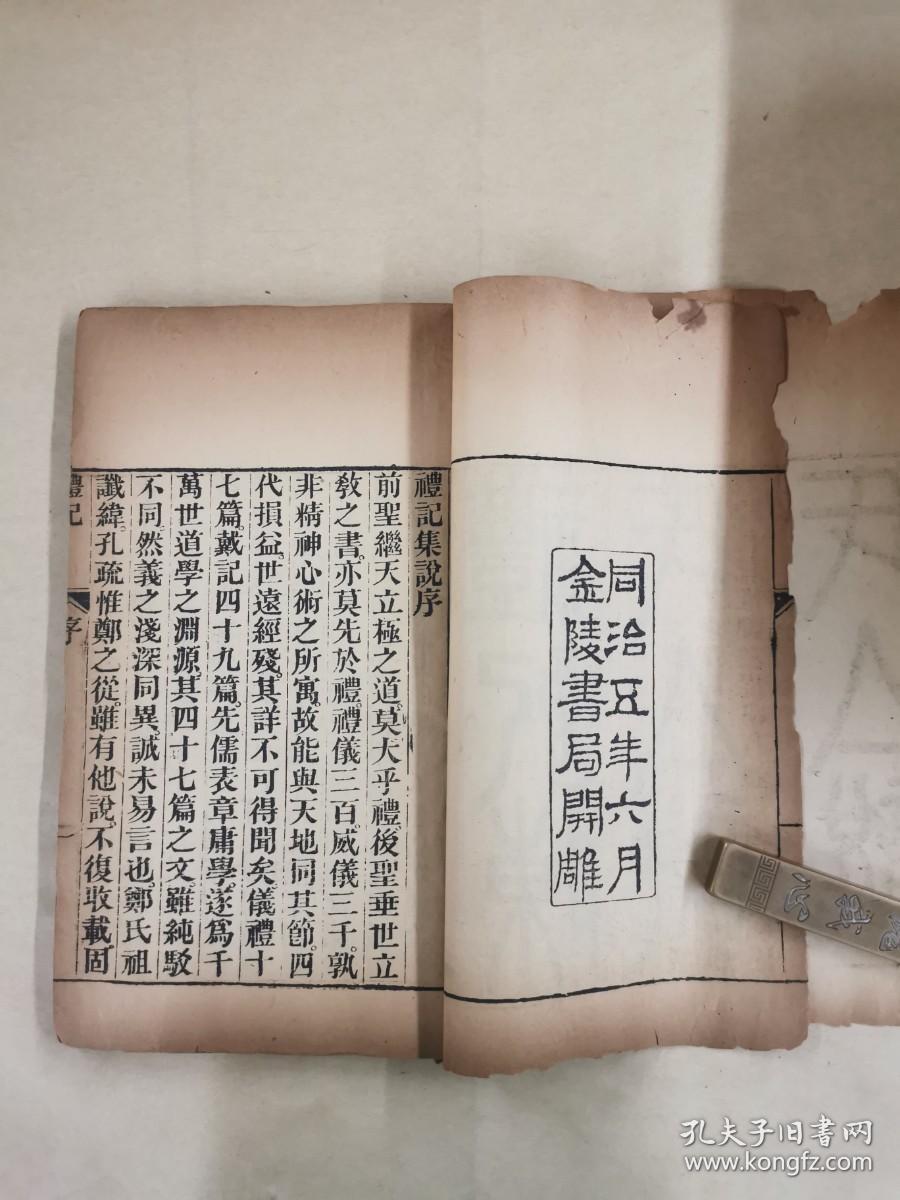 同治五年六月
金陵書局開雕
禮記集說序
前聖繼天立極之道。莫大乎禮。後聖垂世立
敎之書。亦莫先於禮。禮儀三百。威儀三千。孰
非精神心術之所寓。故能與天地同其節。四
代損益。世遠經殘。其詳不可得聞矣。儀禮十
七篇。戴記四十九篇。先儒表章庸學。遂爲千
萬世道學之淵源。其四十七篇之文。雖純駁
不同。然義之淺深同異。誠未易言也。鄭氏祖
讖緯。孔疏惟鄭之從。雖有他說。不復收載。固
禮記
序
一
孔夫子旧書网
www.kongfz.com